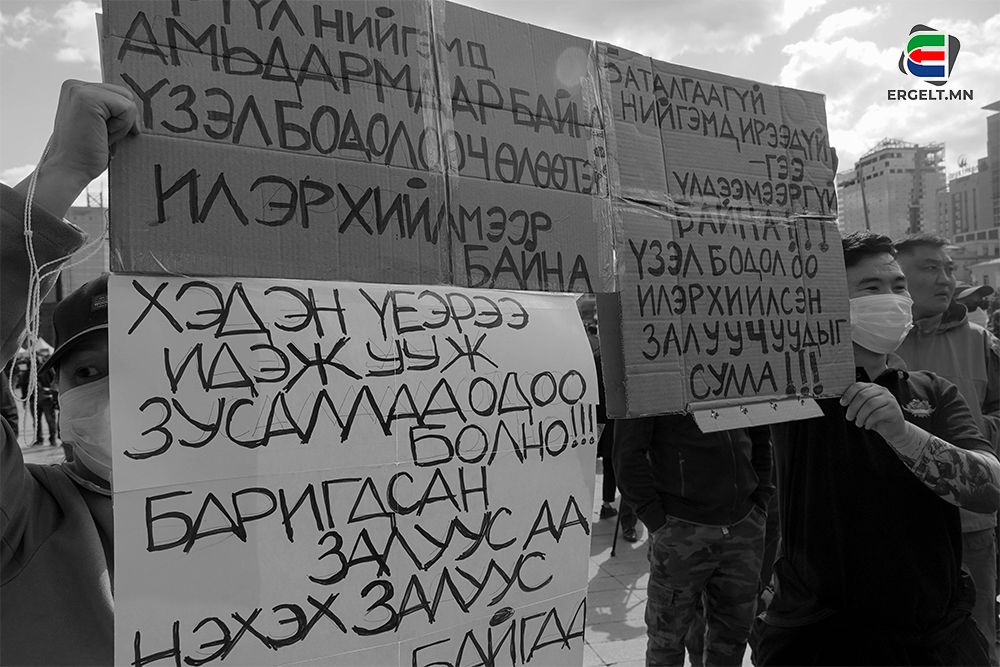 НИЙГЭМД
АМЬДАРМААР БАЙНА
ҮЗЭЛ БОДОЛОО Ч ӨЛӨӨТЭЙ
ИЛЭРХИЙЛМЭЭР
БАЙНА
БАТАЛГААГҮЙ
НИЙГЭМД ИРЭЭДҮЙ
-ГЭЭ
ҮЛДЭЭМЭЭРГҮЙ
БАЙНА!!!
ҮЗЭЛ БОДОЛОО
ИЛЭРХИИЛСЭН
ЗАЛУУЧУУДЫГ
СУЛЛА!!!
ХЭДЭН ҮЕЭРЭЭ
ИДЭЖ УУЖ
ЗУСАЛЛАА ОДОО
БОЛНО!!!
БАРИГДСАН
ЗАЛУУС АА
НЭХЭХ ЗАЛУУС
БАЙГАА
ERGELT.MN